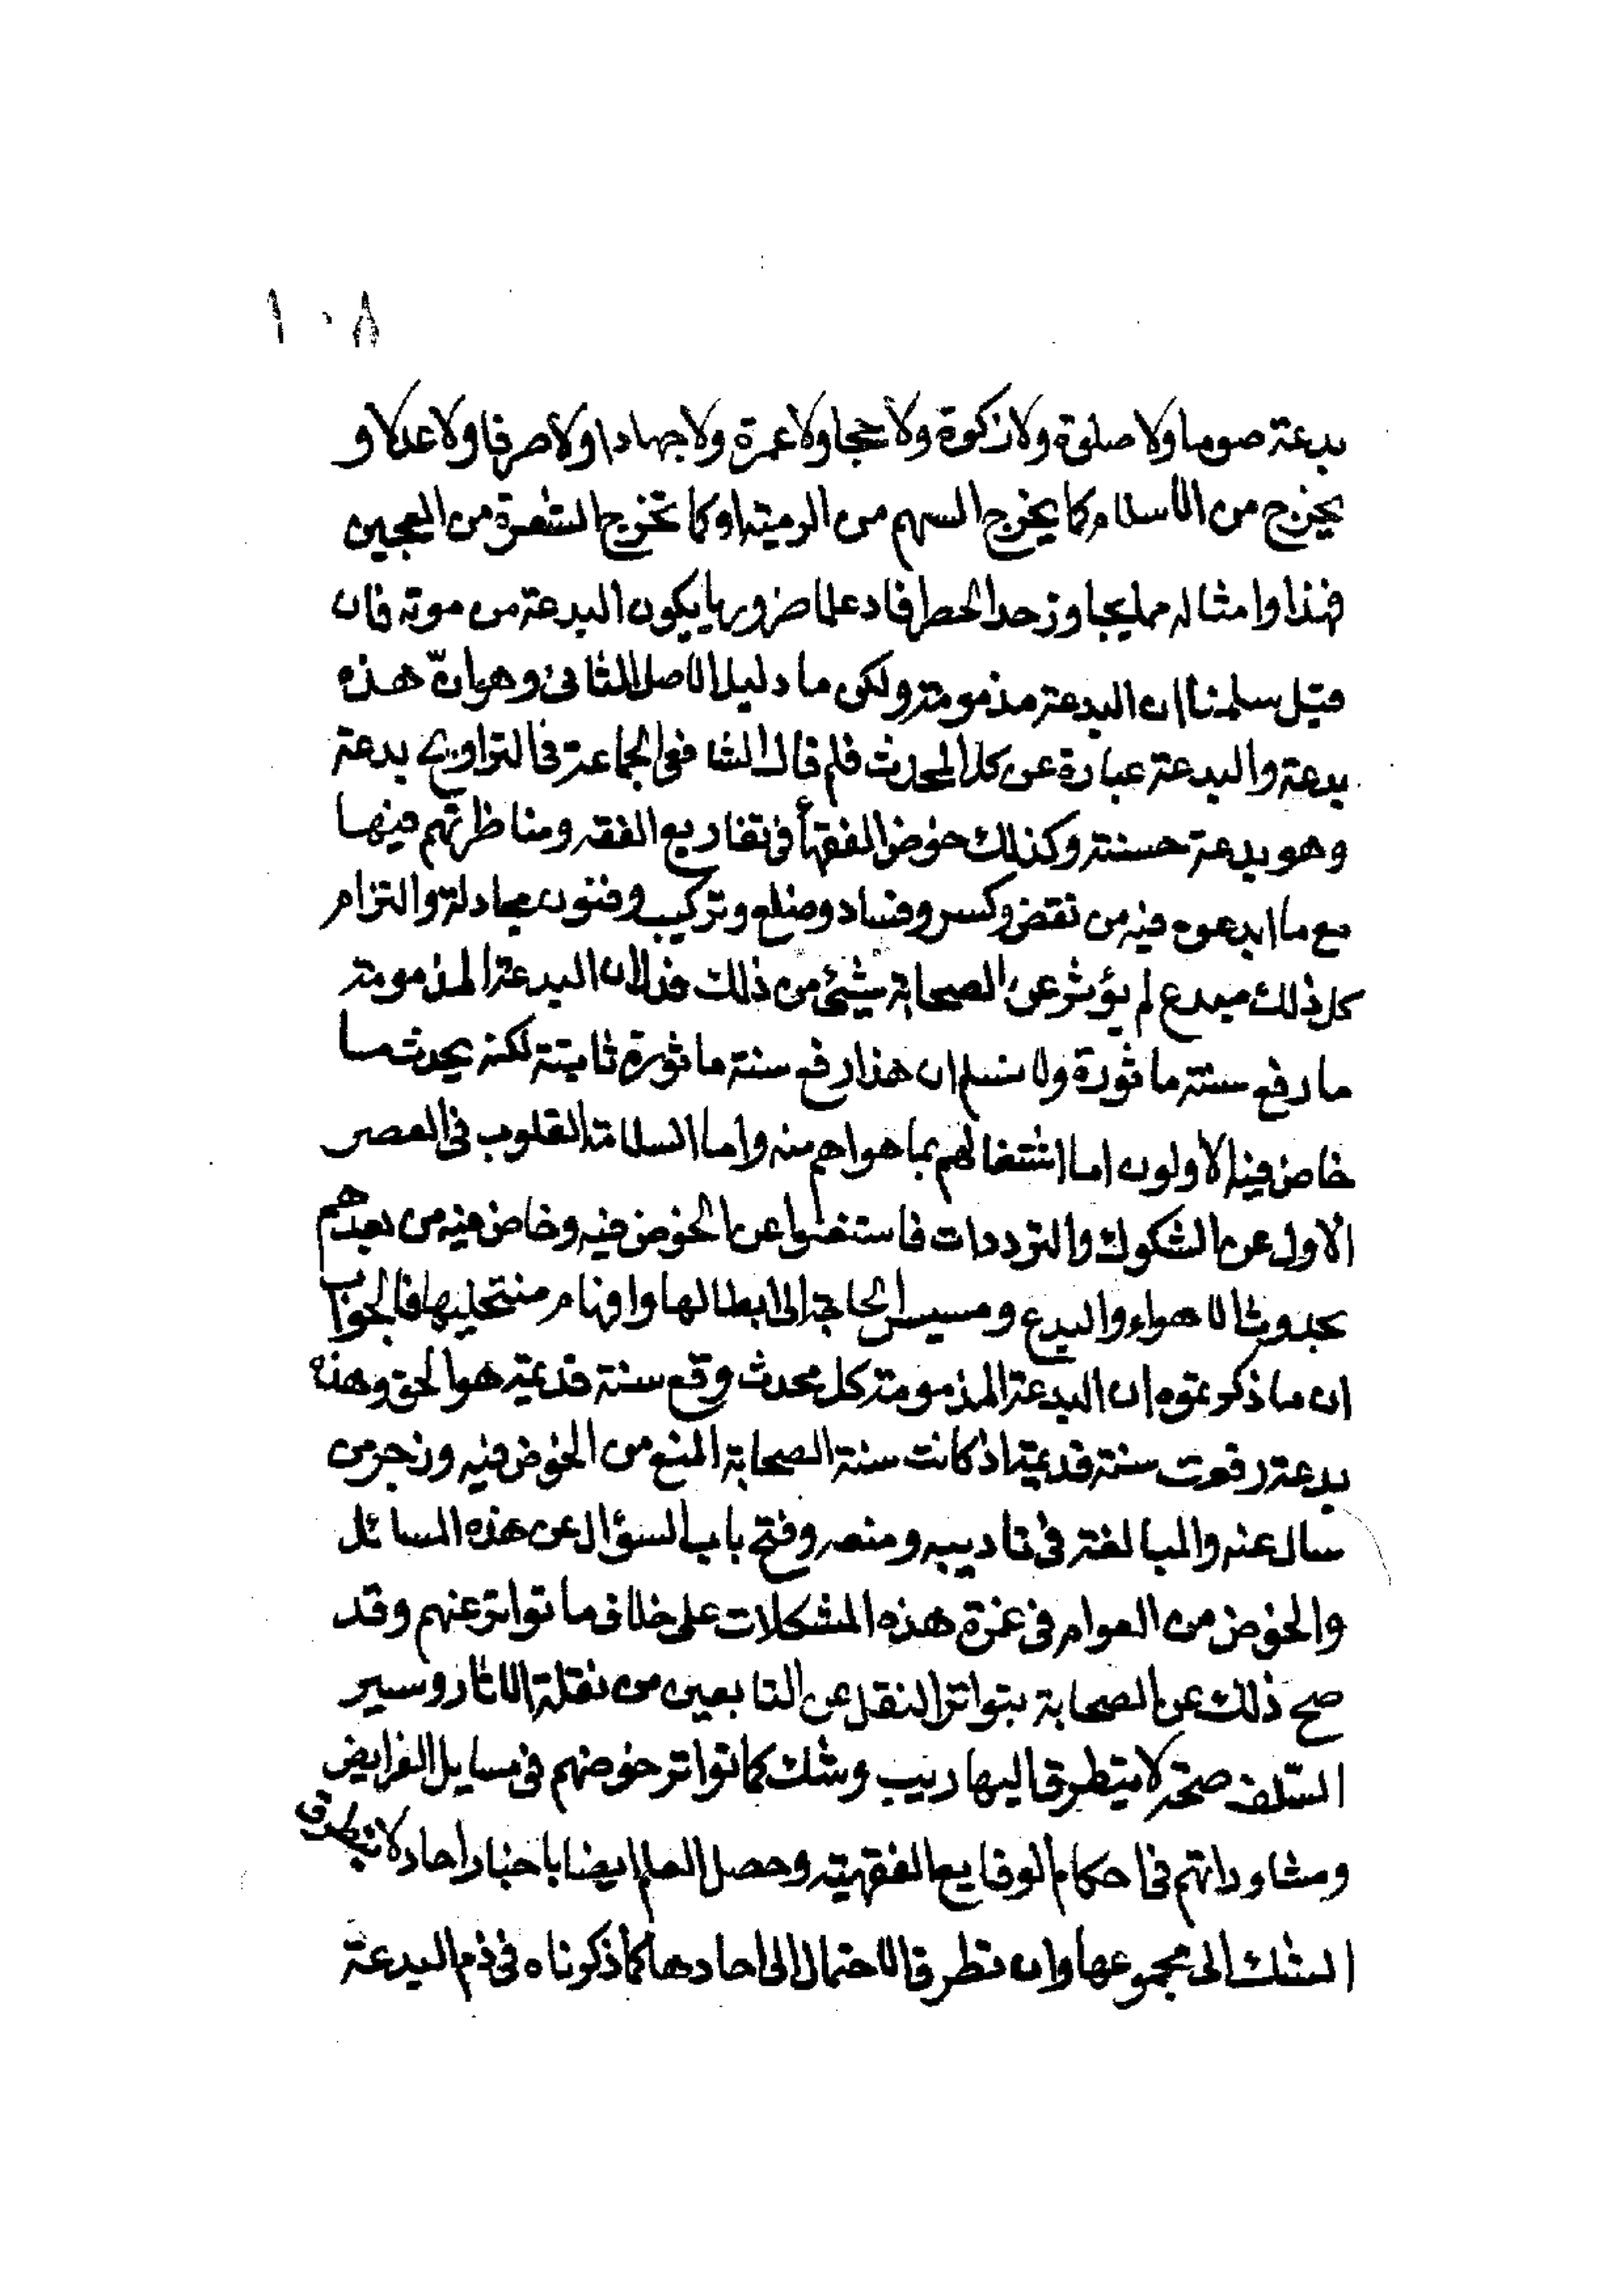 ١٠٨
بدعة صوما ولا صلوة ولا زكوة ولا حجا ولا عمرة ولا جهادا ولا صرفا ولا عدلا و
يخرج من الاسلام كما يخرج السهم من الرمية او كما تخرج الشعرة من العجين
فهذا وامثاله مما يجاوز حد الحصر افاد علما ضروريا بكون البدعة من موته فان
قيل سلمنا ان البدعة مذمومة ولكن ما دليل الاصل الثانى وهو ان هذه
بدعة والبدعة عبارة عن كل المحدث فلم قال الشافعى الجماعة فى التراويح بدعة
وهو بدعة حسنة وكذلك خوض الفقهأ فى تفاريع الفقه ومناظرتهم فيها
مع ما ابدعوه فيه من نقض وكسر وفساد وضلع وتركيب وفنون مجادلة والتزام
كل ذلك مبدع لم يؤثر عن الصحابة شيئ من ذلك فدل ان البدعة المذمومة
ما رفع سنة ماثورة ولا نسلم ان هذا رفع سنة ماثورة ثابتة لكنه يحدث ما
خاض فيه الاولون اما اشتغالهم بما هو اهم منه واما السلامة القلوب فى العصر
الاول عن الشكوك والترددات فاستغنوا عن الخوض فيه وخاض فيه من بعدهم
بحدوث الاهواء والبدع ومسيس الحاجة الى ابطالها وافهام منتحليها فالجواب
ان ما ذكرتموه ان البدعة المذمومة كل محدث وقع سنة قديمة هو الحق وهذه
بدعة رفعت سنة قديمة اذ كانت سنة الصحابة المنع من الخوض فيه وزجر من
سال عنه والمبالغة فى تاديبه ومنعه وفتح باب السؤال عن هذه المسائل
والخوض من العوام فى غمرة هذه المشكلات على خلاف ما تواتر عنهم وقد
صح ذلك عن الصحابة بتواتر النقل عن التابعين من نقلة الاثار وسير
السّلف صحة لا يتطرق اليها ريب وشك كما تواتر خوضهم فى مسايل الفرايض
ومشاوراتهم فى احكام الوقايع الفقهية وحصل العلم ايضا باخبار احاد لا يتطرق
الشك الى مجموعها وان تطرق الاحتمال الى احادها كما ذكرناه فى ذم البدعة